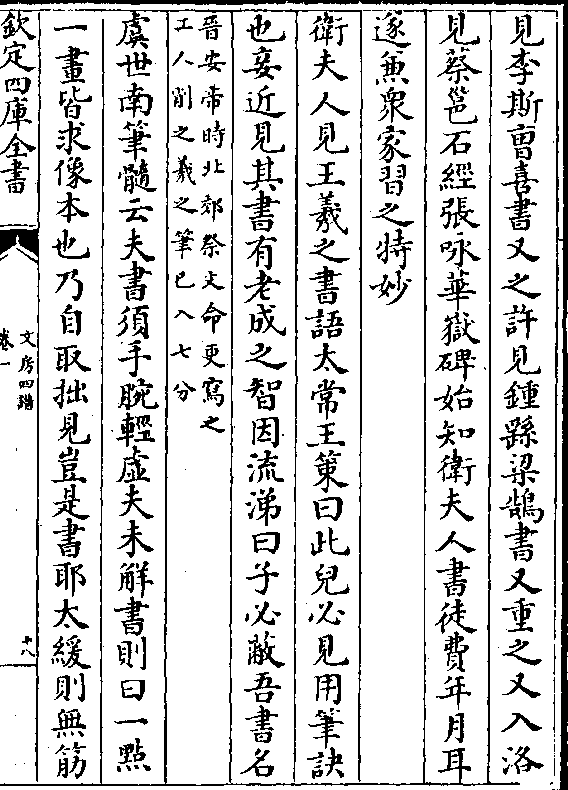 見李斯曹喜書又之許見鍾繇梁鵠書又重之又入洛
見蔡邕石經張咏華嶽碑始知衛夫人書徒費年月耳
遂兼衆家習之特妙
衛夫人見王羲之書語太常王策曰此兒必見用筆訣
也妾近見其書有老成之智因流涕曰子必蔽吾書名
晉安帝時北郊祭文命更寫之
工人削之羲之筆已入七分
虞世南筆髓云夫書須手腕輕虛夫未解書則曰一點
一畫皆求像本也乃自取拙見豈是書耶太緩則無筋
欽定四庫全書
文房四譜
卷一
十八